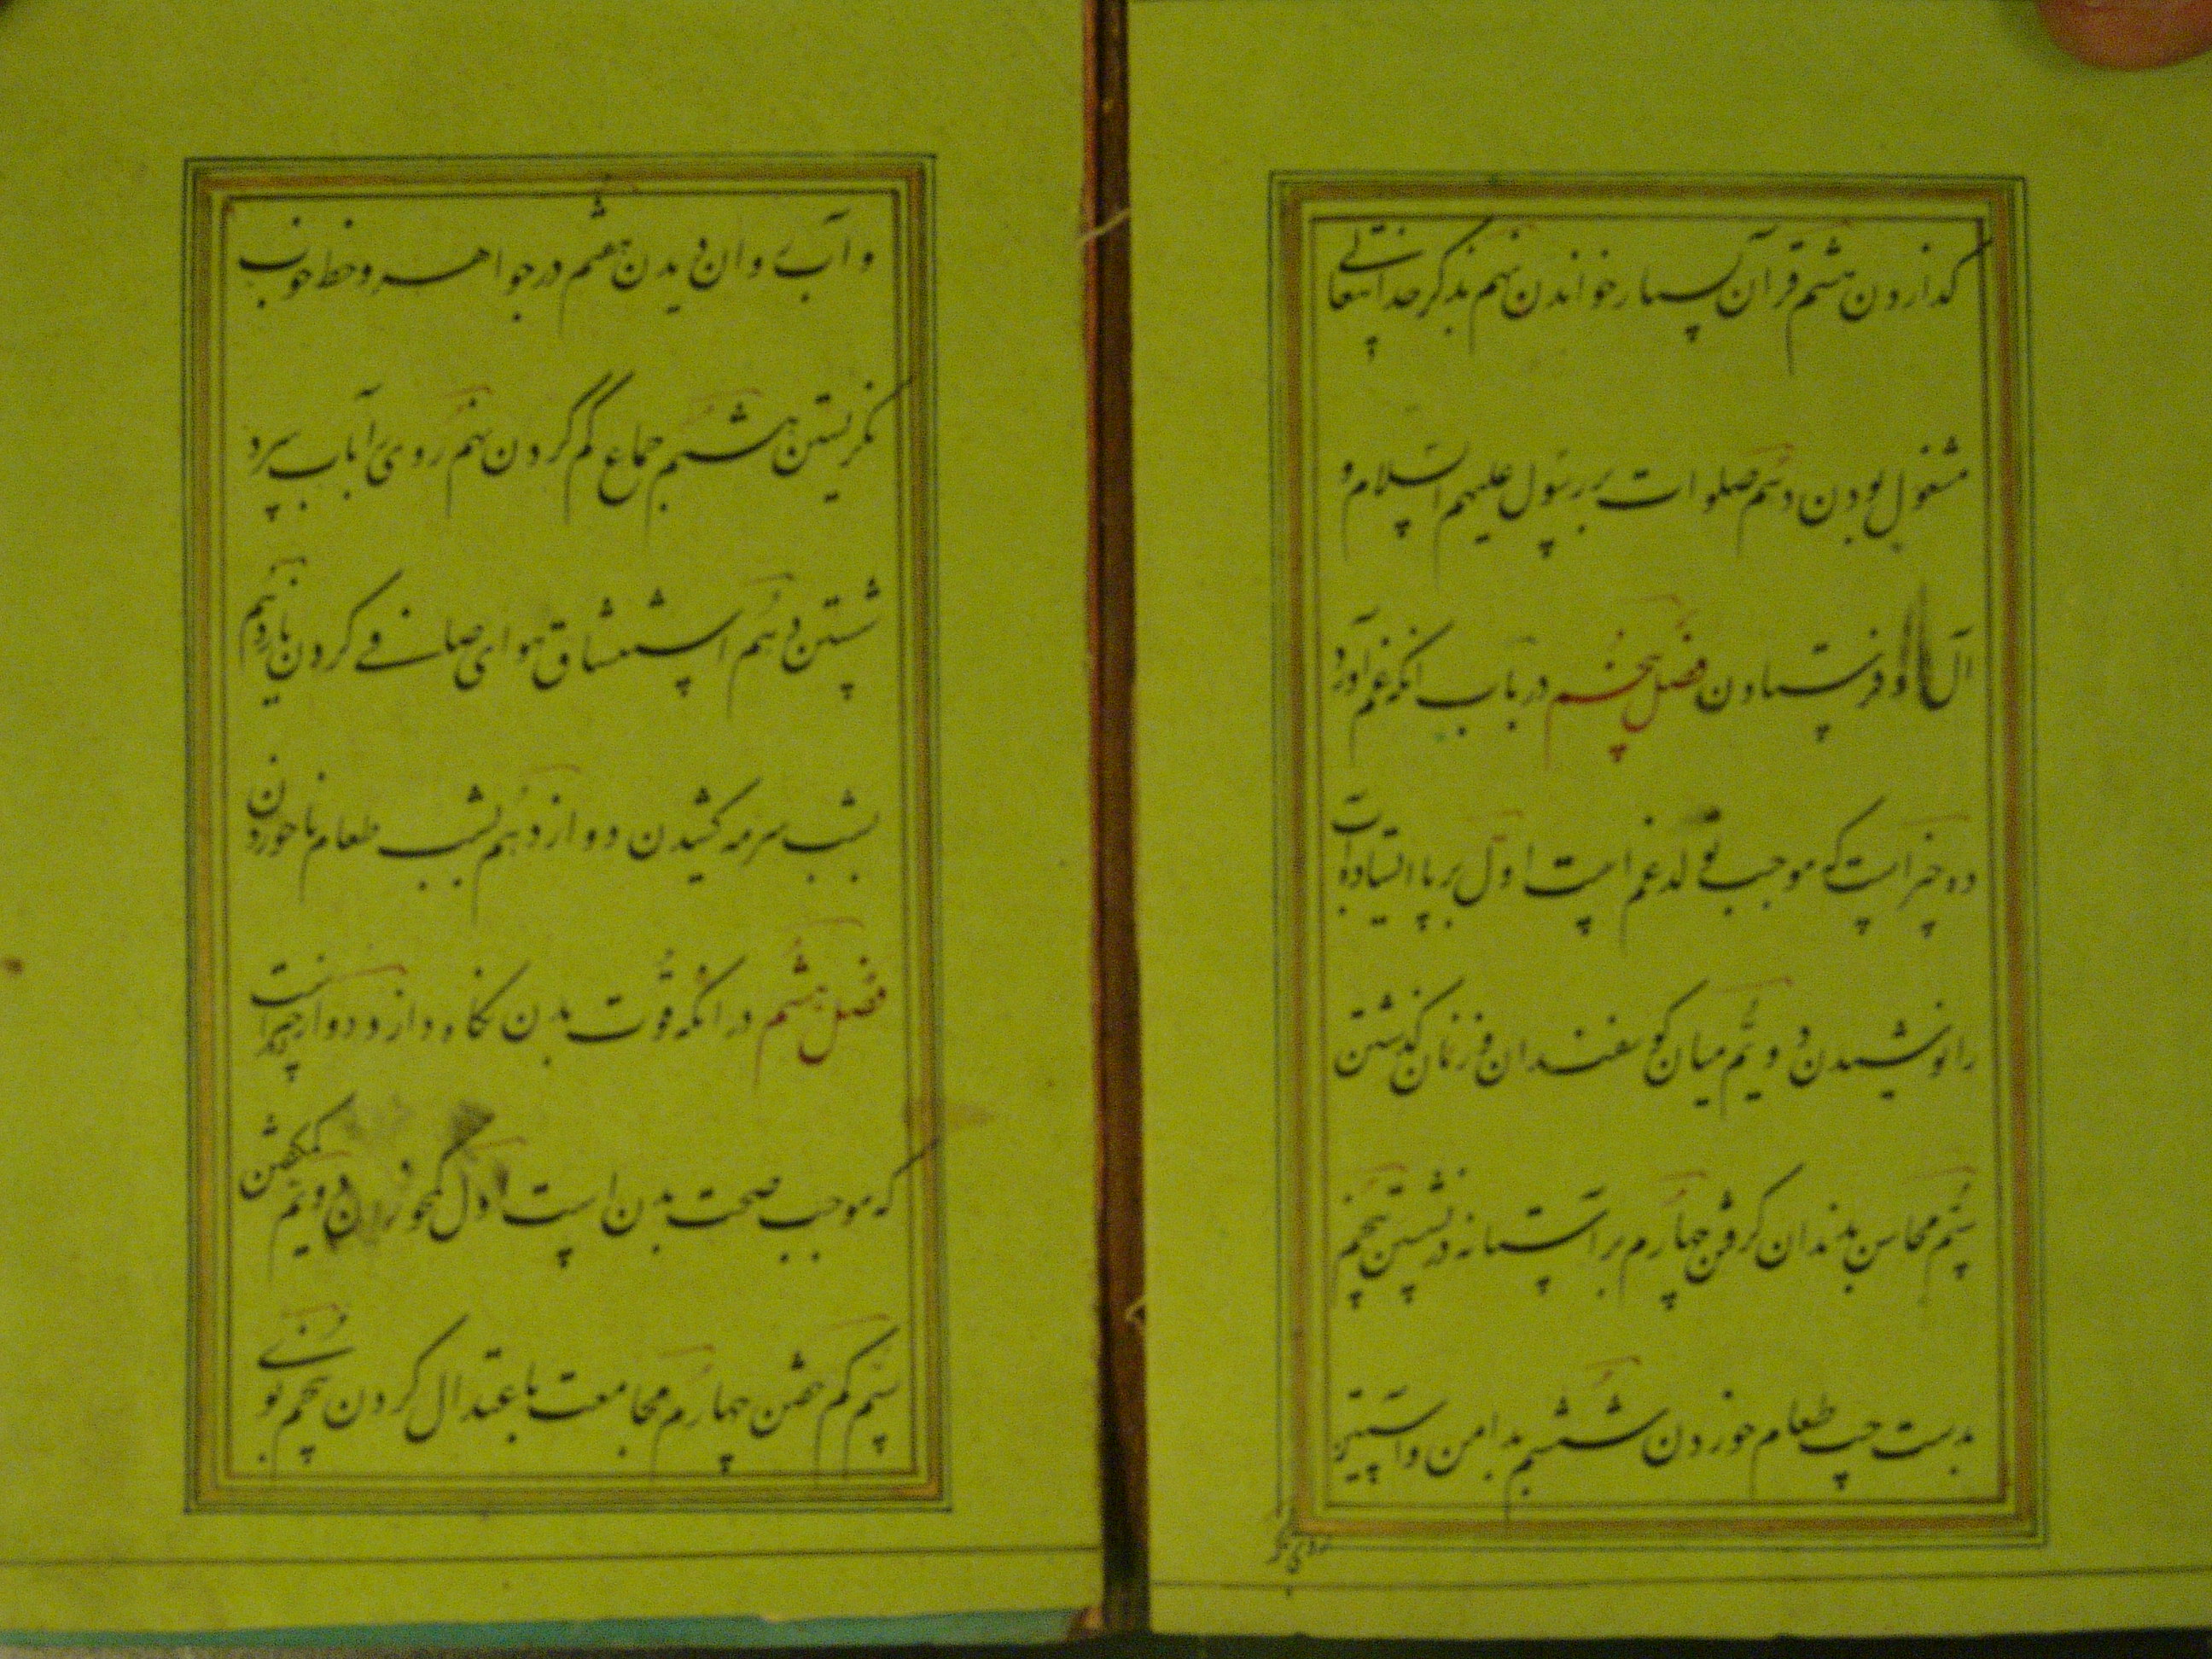 گذاردن هشتم قرآن بسیار خواندن نهم بذکر خدایتعالی
مشغول بودن دهم صلوات بر رسول علیهم السلام و
آل او فرستادن فصل پنجم در باب انکه غم آورد
ده چیز است که موجب تولد غم است اول بر پا ایستاده آب
را نوشیدن دویم میان کوسفندان و زنان گذشتن
سیم محاسن بدندان گرفتن چهارم بر آستانه در نشستن پنجم
بدست چپ طعام خوردن ششم بدامن و آستین
روی
و آب روان دیدن هفتم در جواهر و خط خوب
نگریستن هشتم جماع کم کردن نهم روی را باب سرد
شستن دهم استنشاق هوای صافی کردن یازدهم
بشب سرمه کشیدن دوازدهم بشب طعام ناخوردن
فصل هشتم در انکه قوت بدن نکاه دارد و دوازده چیز است
که موجب صحت بدن است اول کم خوردن دویم کم گفتن
سیم کم خفتن چهارم مجامعت باعتدال کردن پنجم بوی